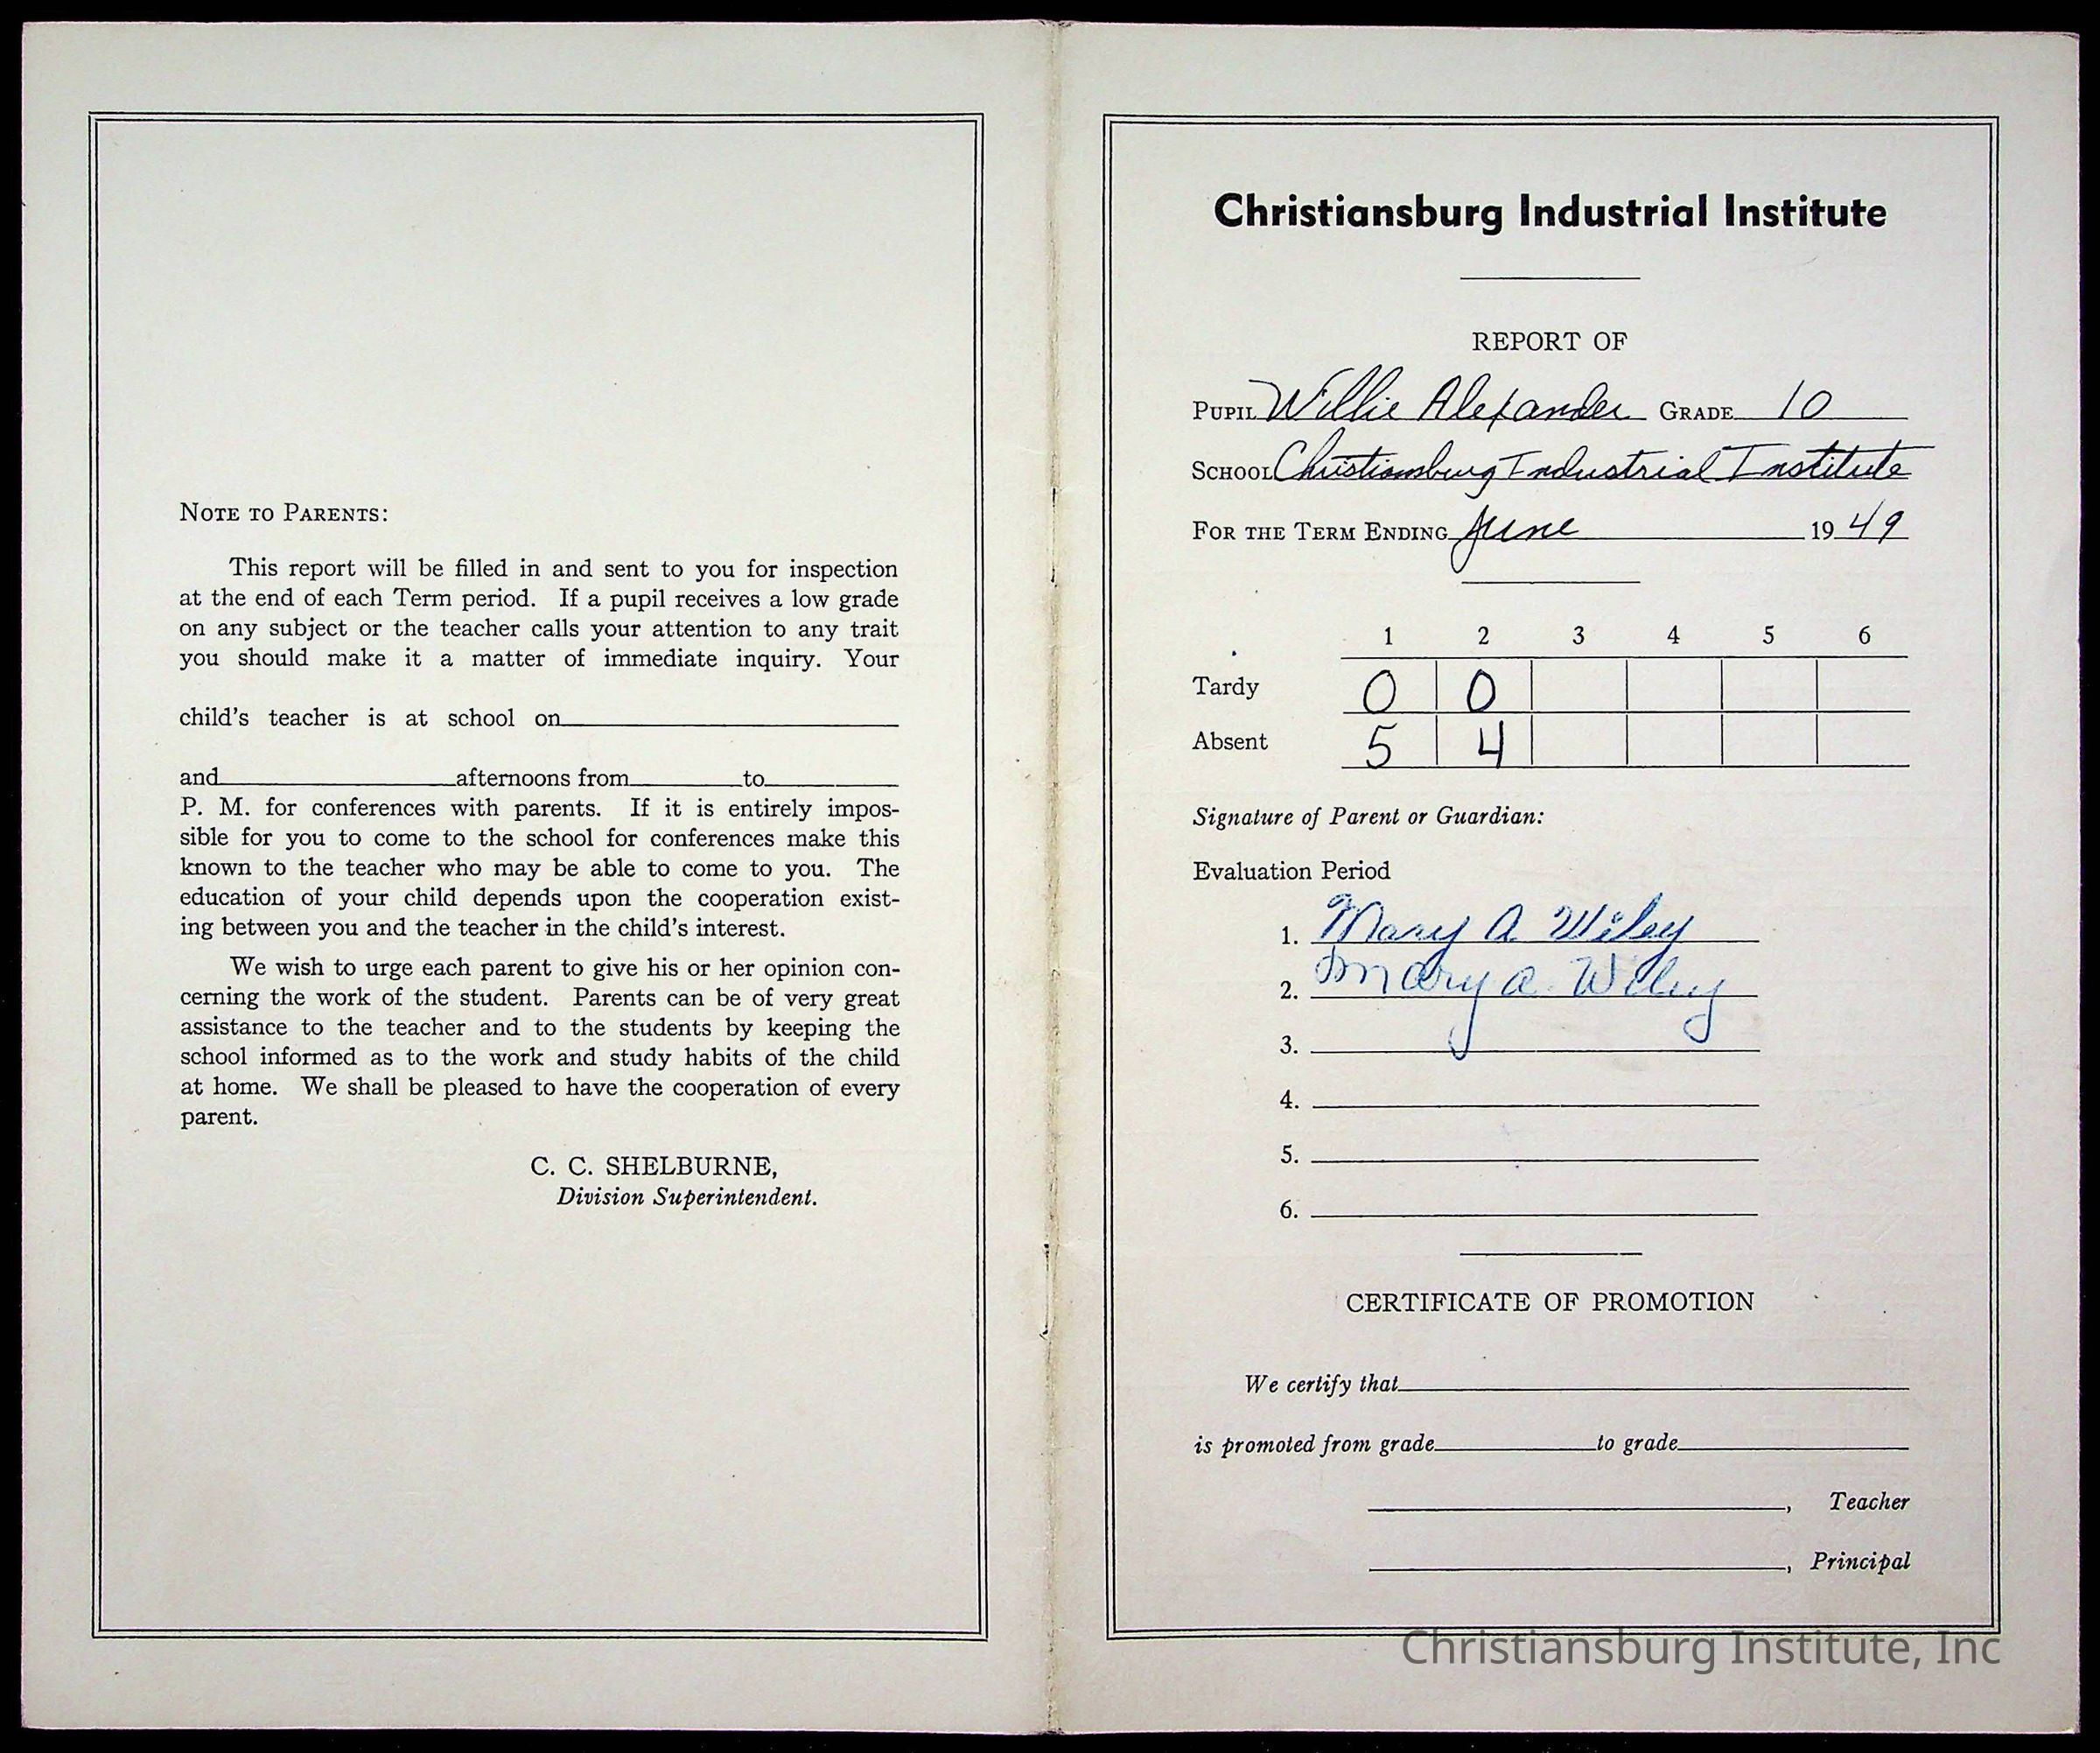 NOTE TO PARENTS:
This report will be filled in and sent to you for inspection
at the end of each Term period. If a pupil receives a low grade
on any subject or the teacher calls your attention to any trait
you should make it a matter of immediate inquiry. Your
child's teacher is at school on
and afternoons from to
P. M. for conferences with parents. If it is entirely impos-
sible for you to come to the school for conferences make this
known to the teacher who may be able to come to you. The
education of your child depends upon the cooperation exist-
ing between you and the teacher in the child's interest.
We wish to urge each parent to give his or her opinion con-
cerning the work of the student. Parents can be of very great
assistance to the teacher and to the students by keeping the
school informed as to the work and study habits of the child
at home. We shall be pleased to have the cooperation of every
parent.
C. C. SHELBURNE,
Division Superintendent.
Christiansburg Industrial Institute
REPORT OF
PUPIL Willie Alexander GRADE 10
SCHOOL Christiansburg Industrial Institute
FOR THE TERM ENDING June 1949
1 2 3 4 5 6
Tardy 0 0
Absent 5 4
Signature of Parent or Guardian:
Evaluation Period
1. Mary A Wiley
2. Mary A. Wiley
3.
4.
5.
6.
CERTIFICATE OF PROMOTION
We certify that
is promoted from grade to grade
, Teacher
, Principal
Christiansburg Institute, Inc